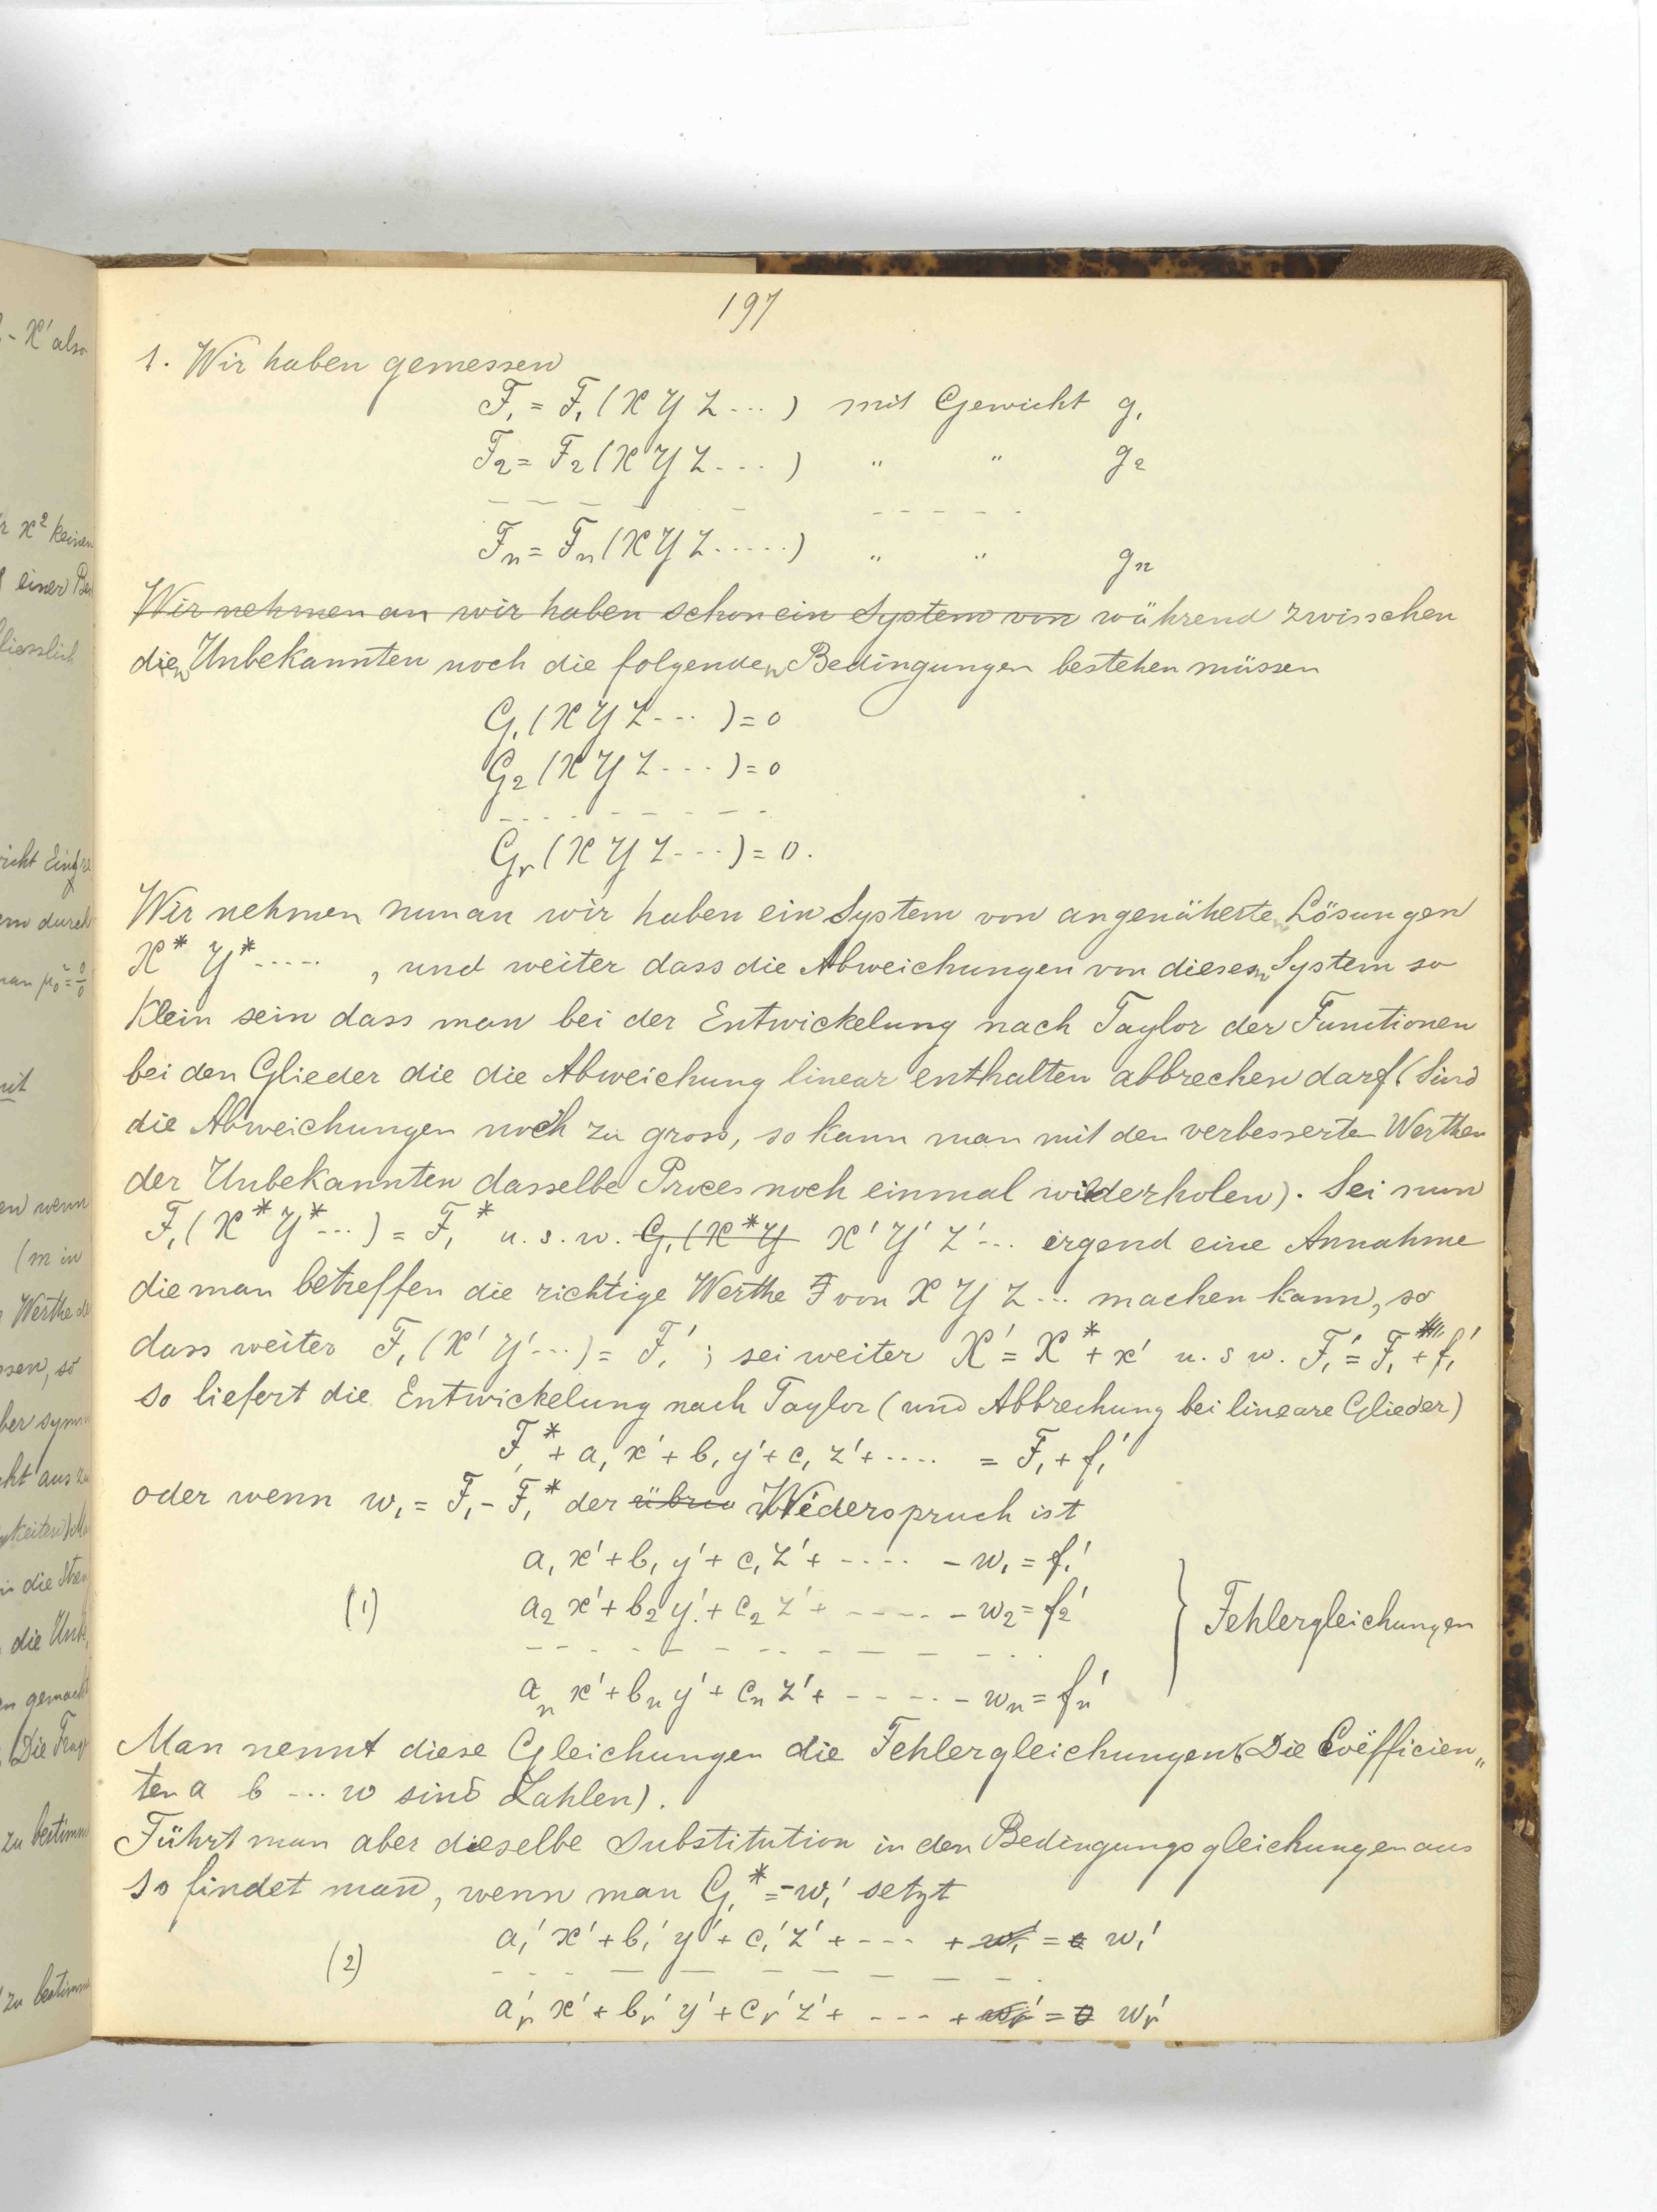 197
1. Wir haben gemessen
F₁ = F₁ (X Y Z ...) mit Gewicht g₁
F₂ = F₂ (X Y Z ...) " " g₂
– – – – – – – – – – –
Fₙ = Fₙ (X Y Z .....) " " gₙ
Wir nehmen an wir haben schon ein System von während zwisschen
dien Unbekannten noch die folgenden Bedingungen bestehen müssen
G₁ (X Y Z ...) = 0
G₂ (X Y Z ...) = 0
– – – – – – – – –
Gᵣ (X Y Z ...) = 0.
Wir nehmen nun an wir haben ein System von angenäherte Lösungen
X* Y* ..... , und weiter dass die Abweichungen von diesem System so
klein sein dass man bei der Entwickelung nach Taylor der Functionen
bei den Glieder die die Abweichung linear enthalten abbrechen darf (Sind
die Abweichungen noch zu gross, so kann man mit den verbesserten Werthen
der Unbekannten dasselbe Proces noch einmal wiederholen). Sei nun
F₁ (X* Y* ...) = F₁* u. s. w. G₁ (X* Y X' Y' Z' ... irgend eine Annahme
die man betreffen die richtige Werthe von X Y Z ... machen kann, so
dass weiter F₁ (X' Y' ...) = F₁' ; sei weiter X' = X* + x' u. s w. F₁' = F₁ + f₁'
so liefert die Entwickelung nach Taylor (und Abbrechung bei lineare Glieder)
F₁* + a₁ x' + b₁ y' + c₁ z' + .... = F₁ + f₁'
oder wenn w₁ = F₁ – F₁* der Wiederspruch ist
a₁ x' + b₁ y' + c₁ z' + ..... – w₁ = f₁'
(1) a₂ x' + b₂ y' + c₂ z' + ..... – w₂ = f₂' } Fehlergleichungen
– – – – – – – – – – –
aₙ x' + bₙ y' + cₙ z' + ..... – wₙ = fₙ'
Man nennt diese Gleichungen die Fehlergleichungen (Die Coëfficien„
ten a b ... w sind Zahlen).
Führt man aber dieselbe Substitution in den Bedingungsgleichungen aus
so findet man, wenn man G₁* = –w₁' setzt
a₁' x' + b₁' y' + c₁' z' + ... + w₁' = 0 w₁'
(2) – – – – – – – – – – –
aᵣ' x' + bᵣ' y' + cᵣ' z' + ... + wᵣ' = 0 wᵣ'